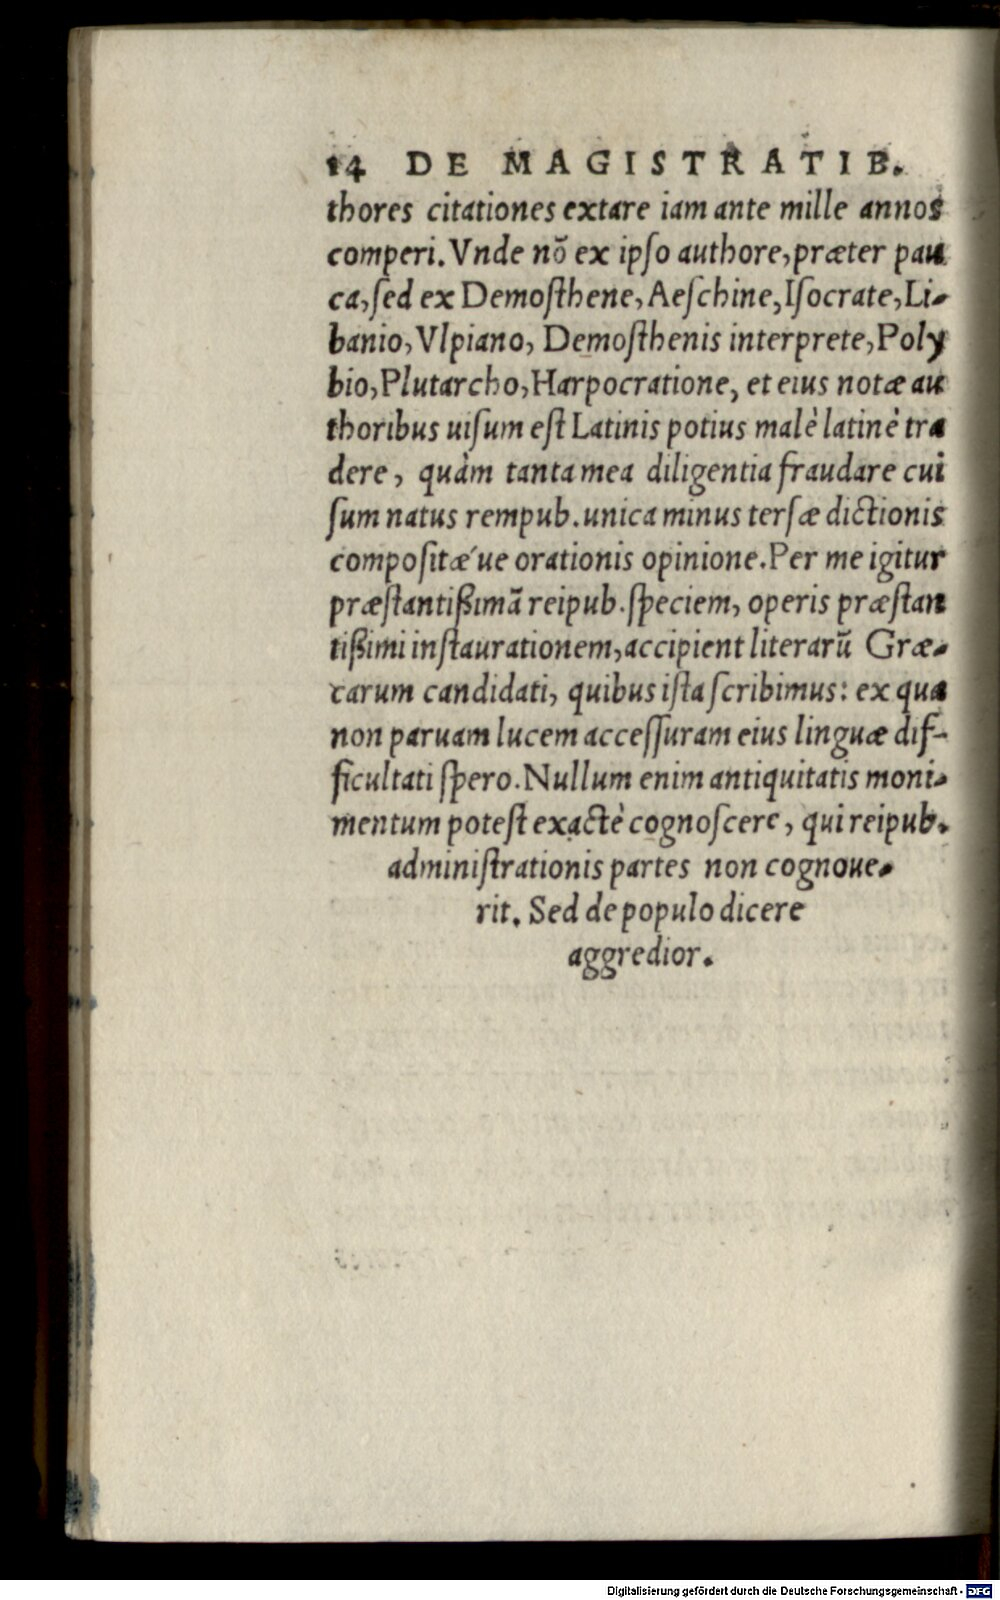 14 DE MAGISTRATIB.
thores citationes extare iam ante mille annos
comperi. Vnde nō ex ipſo authore, præter pau
ca, ſed ex Demoſthene, Aeſchine, Iſocrate, Li-
banio, Vlpiano, Demoſthenis interprete, Poly
bio, Plutarcho, Harpocratione, et eius notæ au
thoribus uiſum eſt Latinis potius malè latinè tra
dere, quàm tanta mea diligentia fraudare cui
ſum natus rempub. unica minus terſæ dictionis
compoſitæ´ue orationis opinione. Per me igitur
præſtantiſſimā reipub. ſpeciem, operis præſtan
tiſſimi inſtaurationem, accipient literarū Græ-
carum candidati, quibus iſta ſcribimus: ex qua
non paruam lucem acceſſuram eius linguæ dif-
ficultati ſpero. Nullum enim antiquitatis moni-
mentum poteſt exactè cognoſcere, qui reipub.
adminiſtrationis partes non cognoue-
rit. Sed de populo dicere
aggredior.
Digitalisierung gefördert durch die Deutsche Forschungsgemeinschaft - DFG